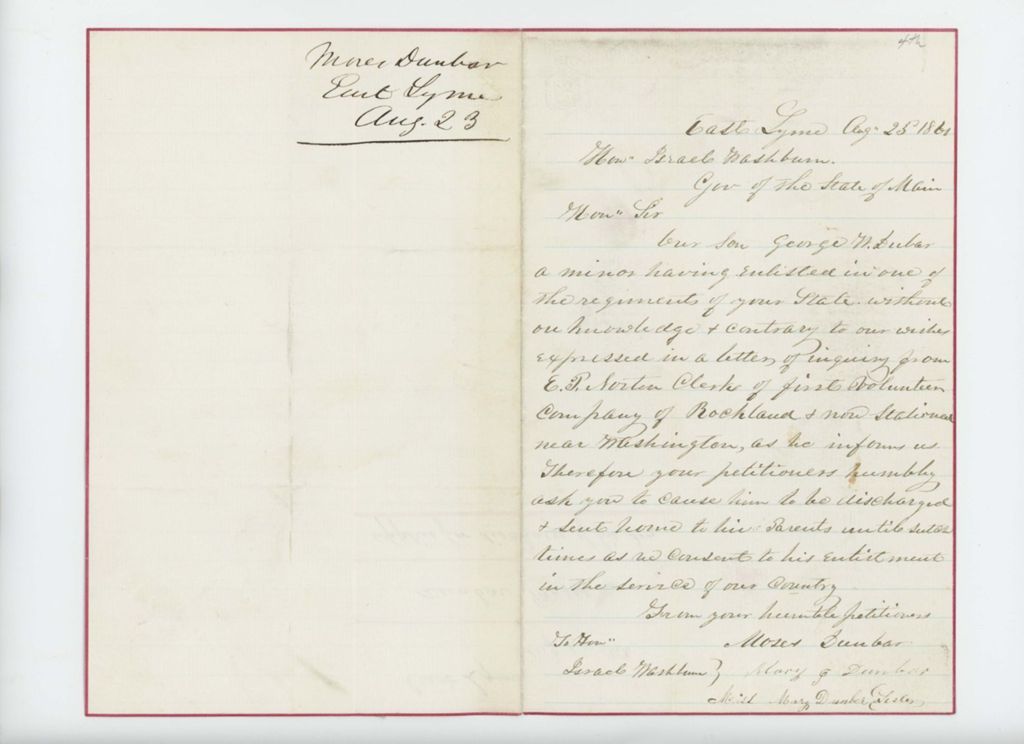 Moses Dunbar
East Lyme
Aug. 23
4th
East Lyme Aug 25th 1861
Hon Israel Washburn.
Gov of the State of Main
Hon Sir
Our Son George W. Dubar
a minor having Enlisted in one of
the regiments of your State without
ou knowledge & contrary to our wishes
expressed in a letter of inquiry from
E. P. Norton Clerk of first Volunteer
Company of Rockland & now Stationed
near Washington, as he informs us
Therefore your petitioners humbly
ask you to cause him to be discharged
& sent home to his Parents untill such
times as we Consent to his Enlistment
in the service of our Country
From your humble petitioners
To Hon
Moses Dunbar
Israel Washburn
Mary G Dunbar
Miss Mary Dunbar Sister